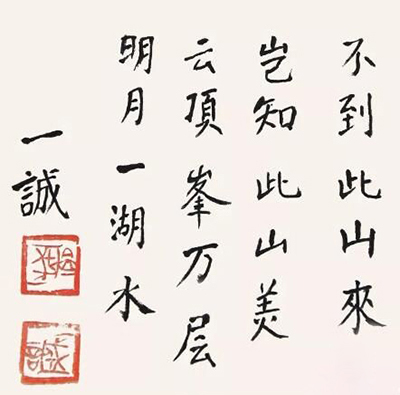 不到此山來
岂知此山美
云頂峯万层
明月一湖水
一誠